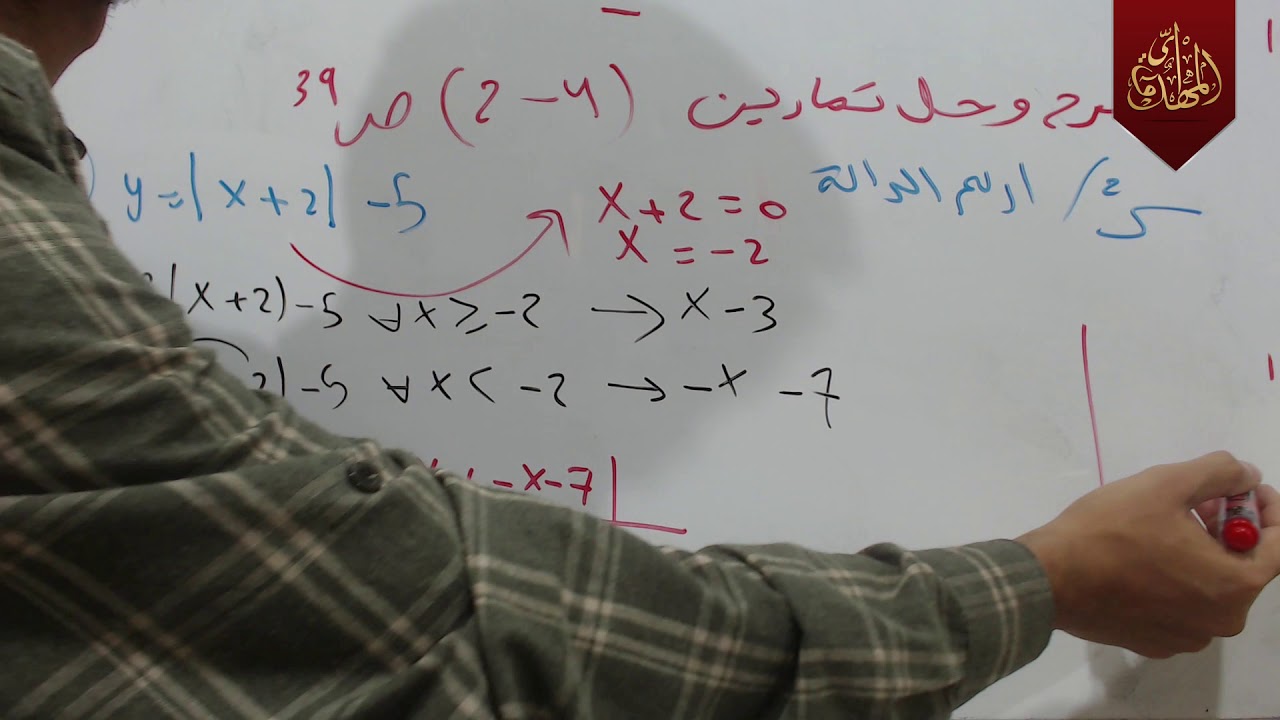 شرح وحل تمارين (2-4) ص39
س2/ ارسم الدالة
y=|x+2|-5
x+2=0
x=-2
(x+2)-5 ∀x≥-2 → x-3
2)-5 ∀x<-2 → -x-7
-x-7